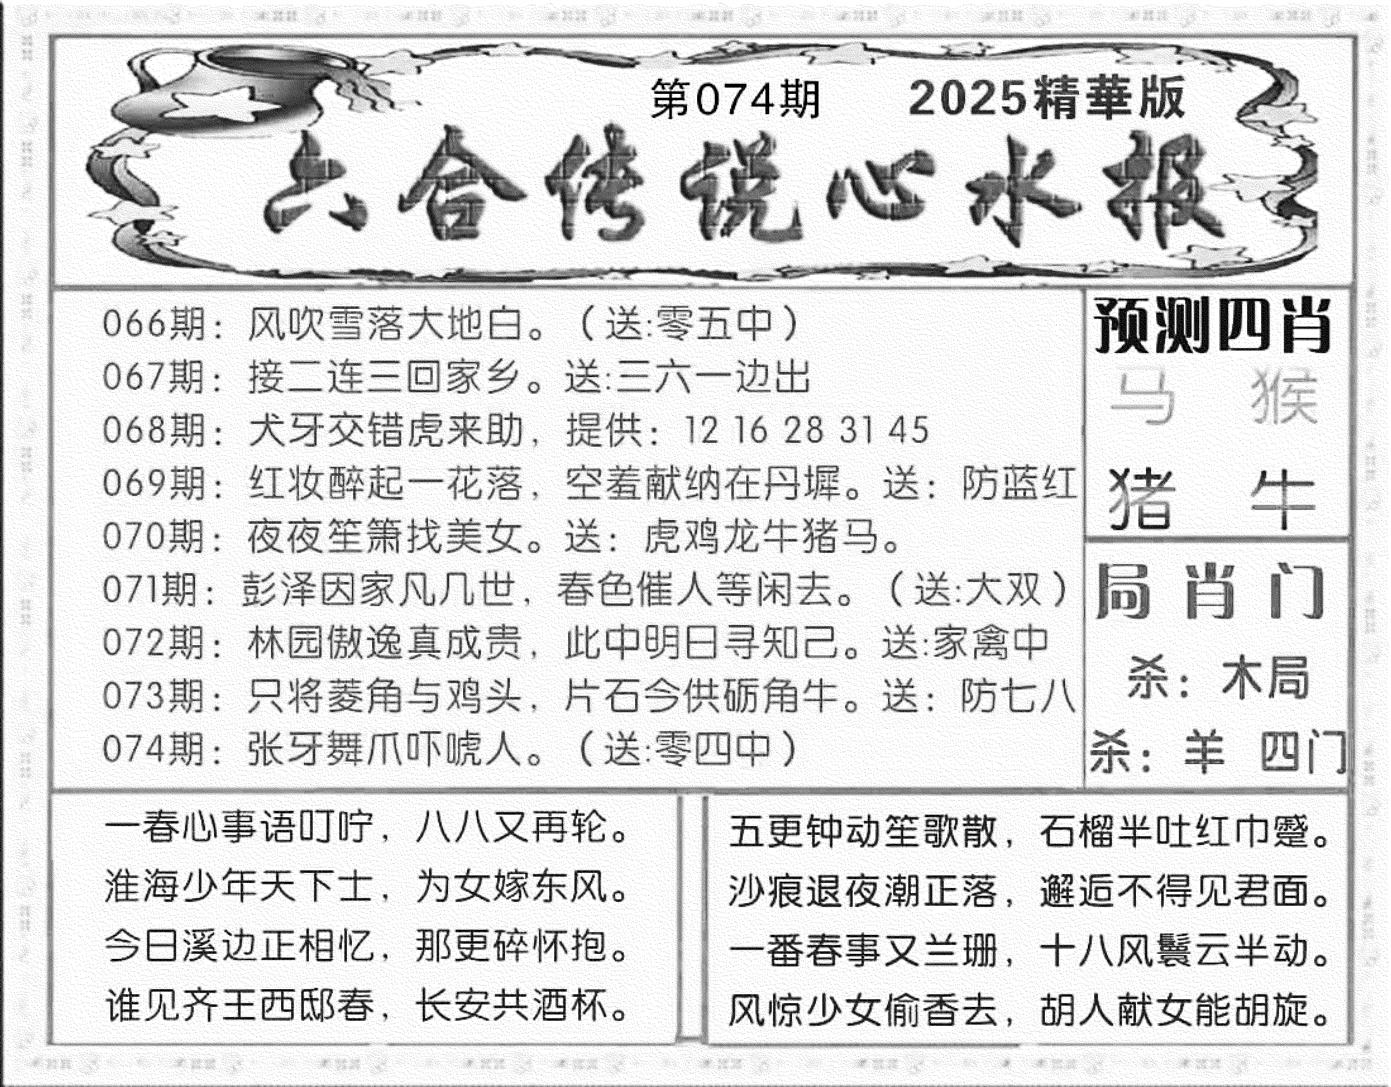 第074期 2025精華版
六合传说心水报
066期：风吹雪落大地白。（送:零五中）
067期：接二连三回家乡。送:三六一边出
068期：犬牙交错虎来助，提供：12 16 28 31 45
069期：红妆醉起一花落，空羞献纳在丹墀。送：防蓝红
070期：夜夜笙箫找美女。送：虎鸡龙牛猪马。
071期：彭泽因家凡几世，春色催人等闲去。（送:大双）
072期：林园傲逸真成贵，此中明日寻知己。送:家禽中
073期：只将菱角与鸡头，片石今供砺角牛。送：防七八
074期：张牙舞爪吓唬人。（送:零四中）
预测四肖
马 猴
猪 牛
局肖门
杀：木局
杀：羊 四门
一春心事语叮咛，八八又再轮。
淮海少年天下士，为女嫁东风。
今日溪边正相忆，那更碎怀抱。
谁见齐王西邸春，长安共酒杯。
五更钟动笙歌散，石榴半吐红巾蹙。
沙痕退夜潮正落，邂逅不得见君面。
一番春事又兰珊，十八风鬟云半动。
风惊少女偷香去，胡人献女能胡旋。